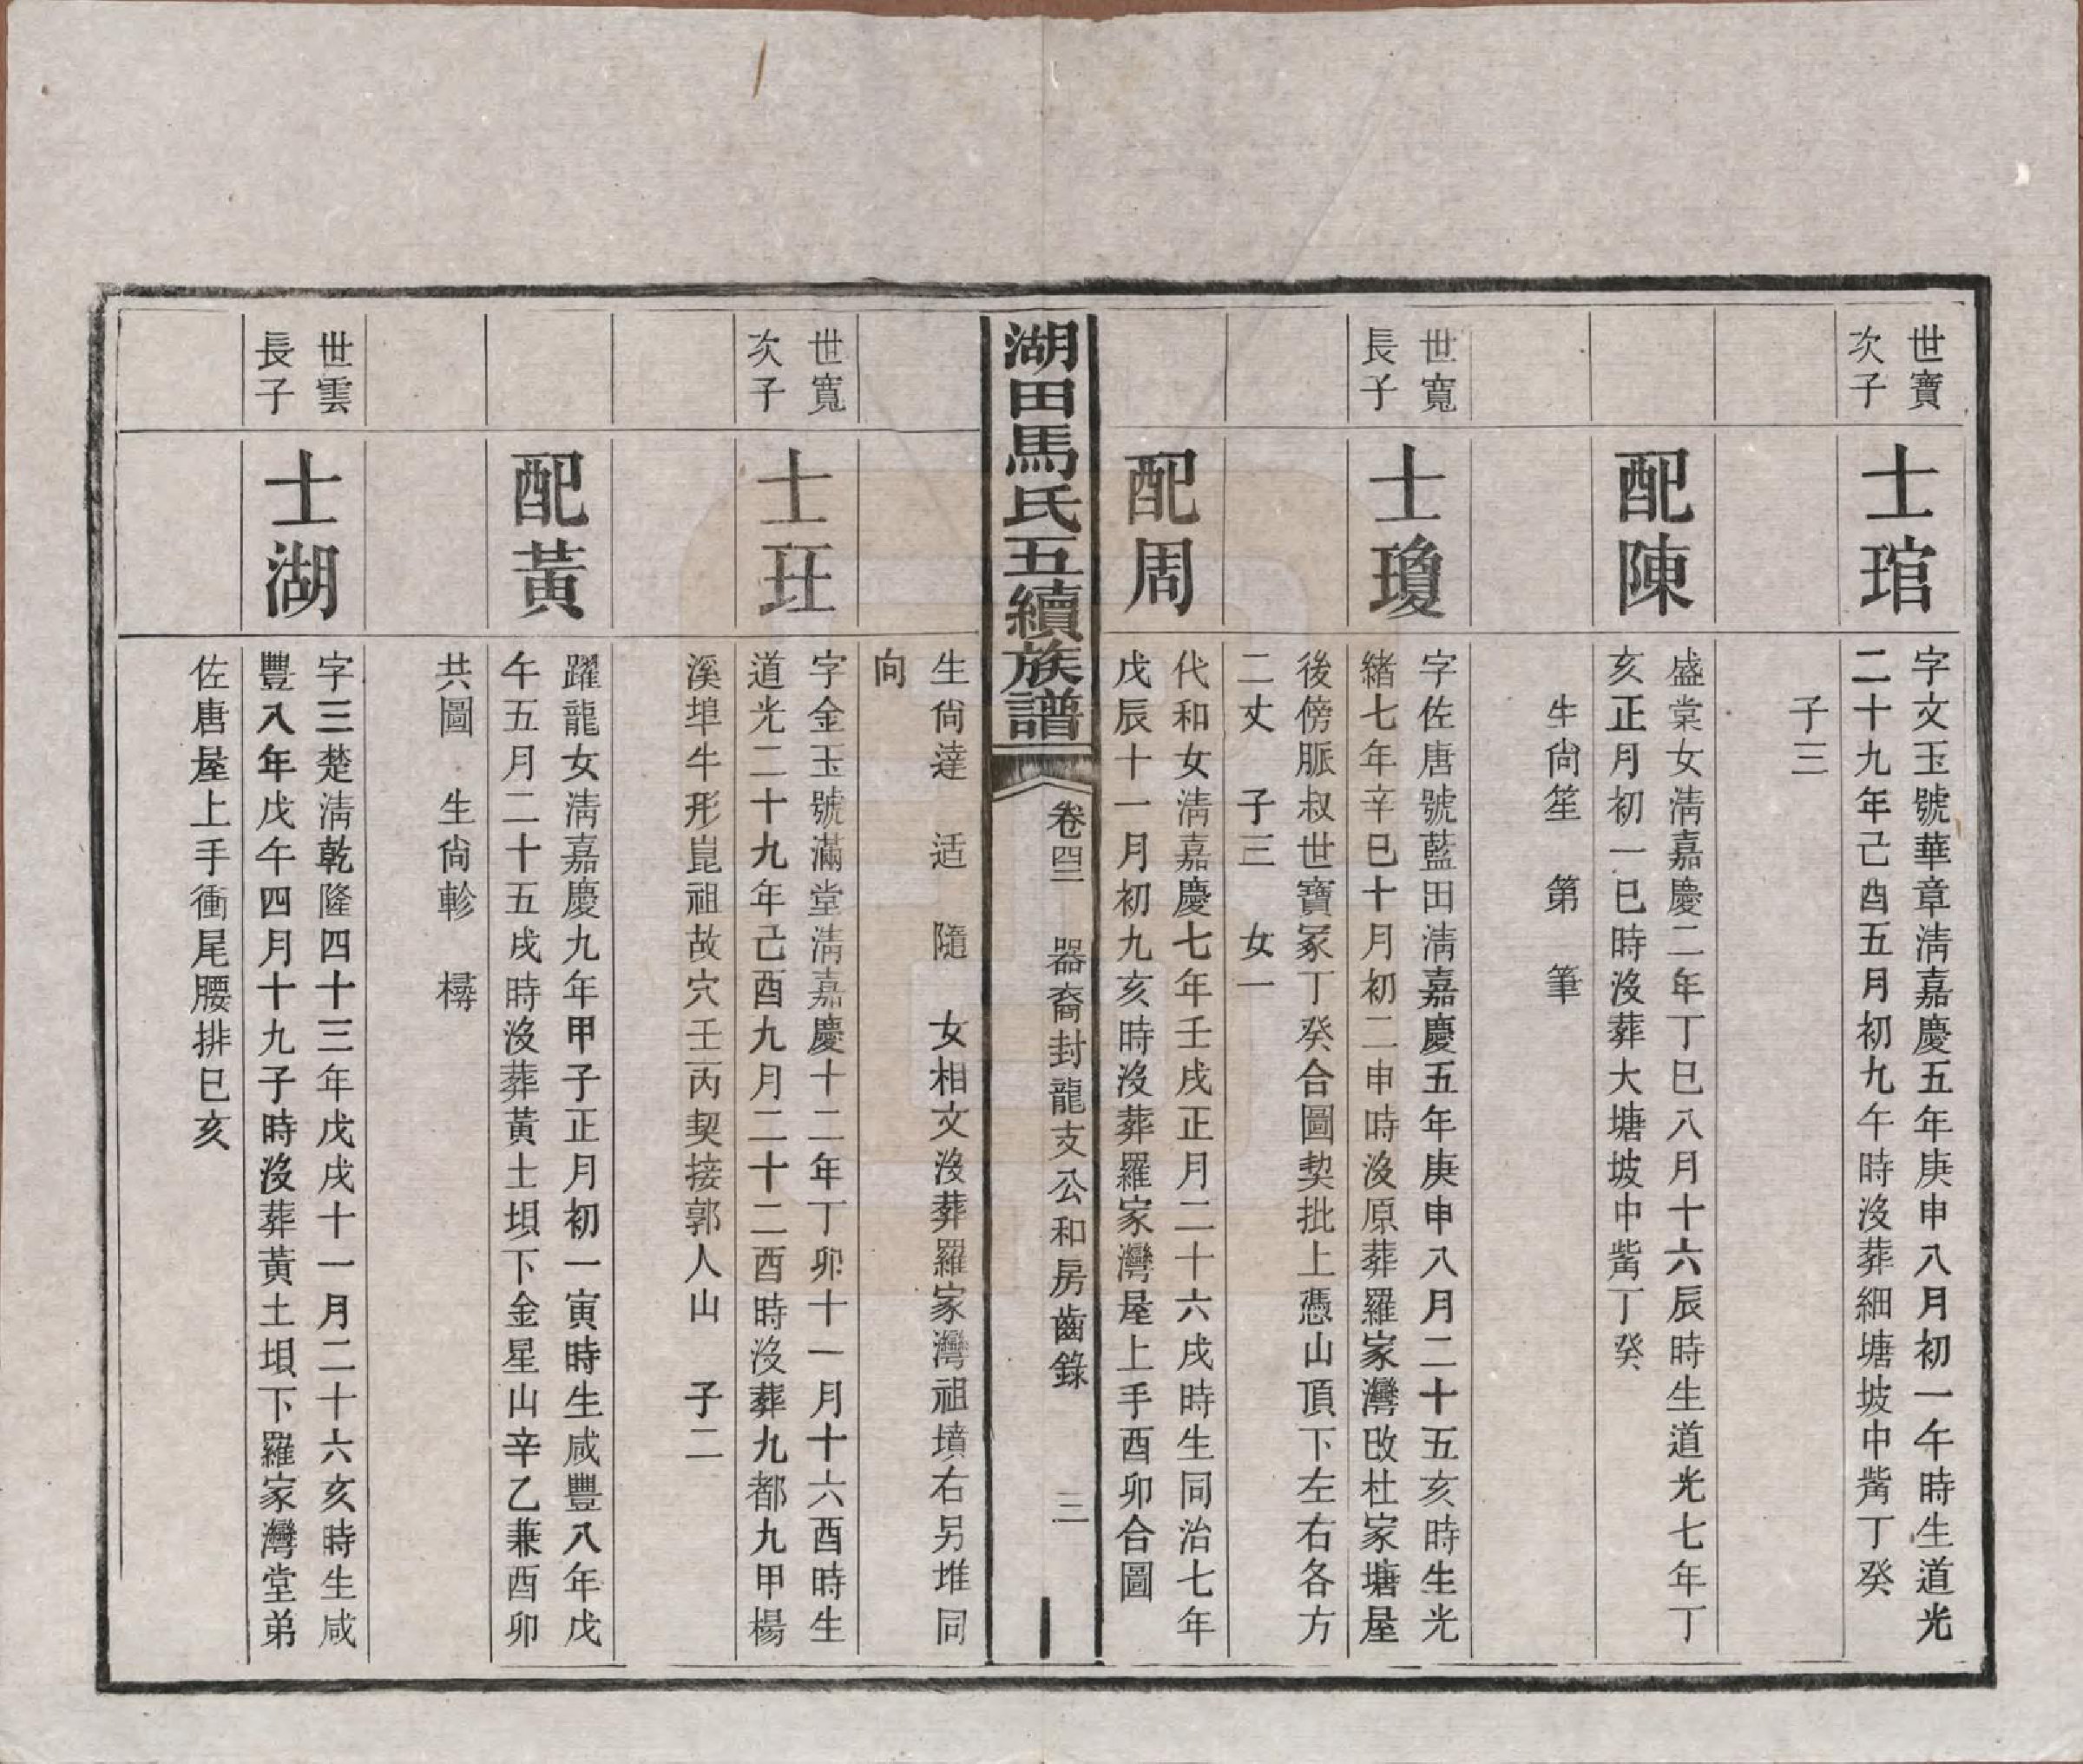 世寶
次子
士琯
字文玉號華章淸嘉慶五年庚申八月初一午時生道光
二十九年己酉五月初九午時沒葬細塘坡中觜丁癸
子三
配陳
盛棠女淸嘉慶二年丁巳八月十六辰時生道光七年丁
亥正月初一巳時沒葬大塘坡中觜丁癸
生尙笙　第　筆
世寬
長子
士瓊
字佐唐號藍田淸嘉慶五年庚申八月二十五亥時生光
緒七年辛巳十月初二申時沒原葬羅家灣改杜家塘屋
後傍脈叔世寶冢丁癸合圖契批上憑山頂下左右各方
二丈　子三　女一
配周
代和女淸嘉慶七年壬戌正月二十六戌時生同治七年
戊辰十一月初九亥時沒葬羅家灣屋上手酉卯合圖
湖田馬氏五續族譜
卷四　器裔封龍支公和房齒錄　三
生尙達　适　隨　女相文沒葬羅家灣祖墳右另堆同
向
世寬
次子
士玨
字金玉號滿堂淸嘉慶十二年丁卯十一月十六酉時生
道光二十九年己酉九月二十二酉時沒葬九都九甲楊
溪埠牛形崑祖故穴壬丙契接郭人山　子二
配黃
躍龍女淸嘉慶九年甲子正月初一寅時生咸豐八年戊
午五月二十五戌時沒葬黃土垻下金星山辛乙兼酉卯
共圖　生尙軫　樳
世雲
長子
士湖
字三楚淸乾隆四十三年戊戌十一月二十六亥時生咸
豐八年戊午四月十九子時沒葬黃土垻下羅家灣堂弟
佐唐屋上手衝尾腰排巳亥